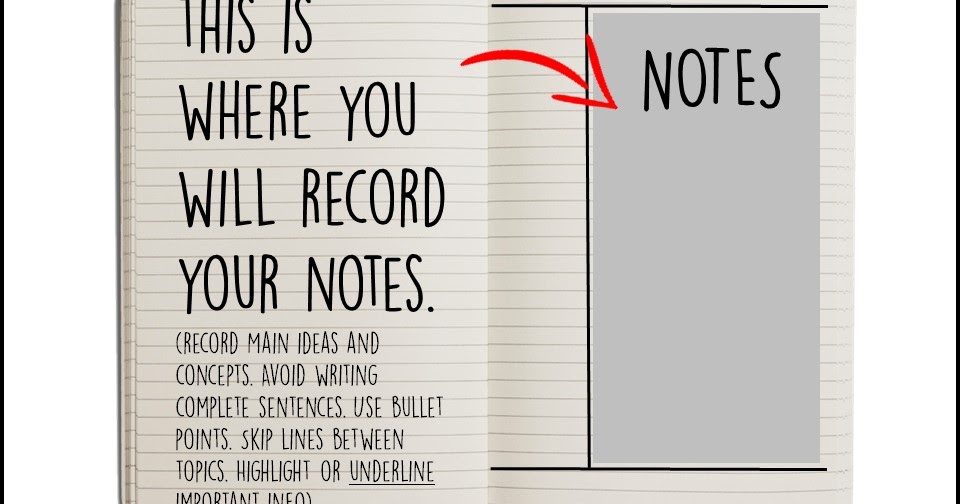 THIS IS
WHERE YOU
WILL RECORD
YOUR NOTES.
(RECORD MAIN IDEAS AND
CONCEPTS. AVOID WRITING
COMPLETE SENTENCES. USE BULLET
POINTS. SKIP LINES BETWEEN
TOPICS. HIGHLIGHT OR UNDERLINE
IMPORTANT INFO)
NOTES